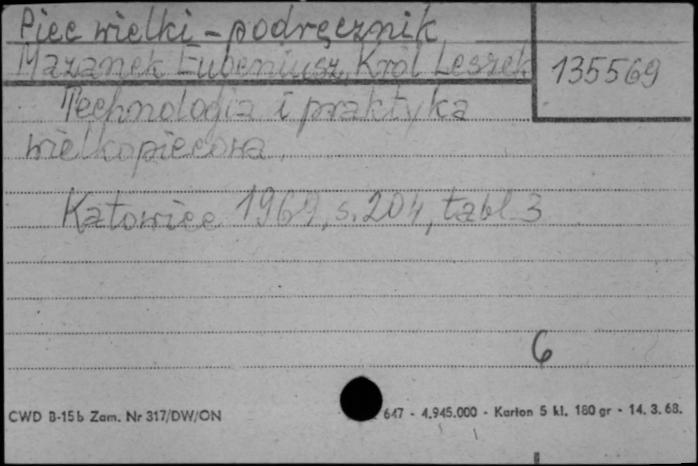 Piec wielki - podręcznik
Mazanek Eugeniusz, Król Leszek
135569
Technologia i praktyka
wielkopiecowa.
Katowice 1969, s. 204, tabl. 3
6
CWD B-15b Zam. Nr 317/DW/ON
647 - 4.945.000 - Karton 5 kl. 180 gr - 14. 3. 68.